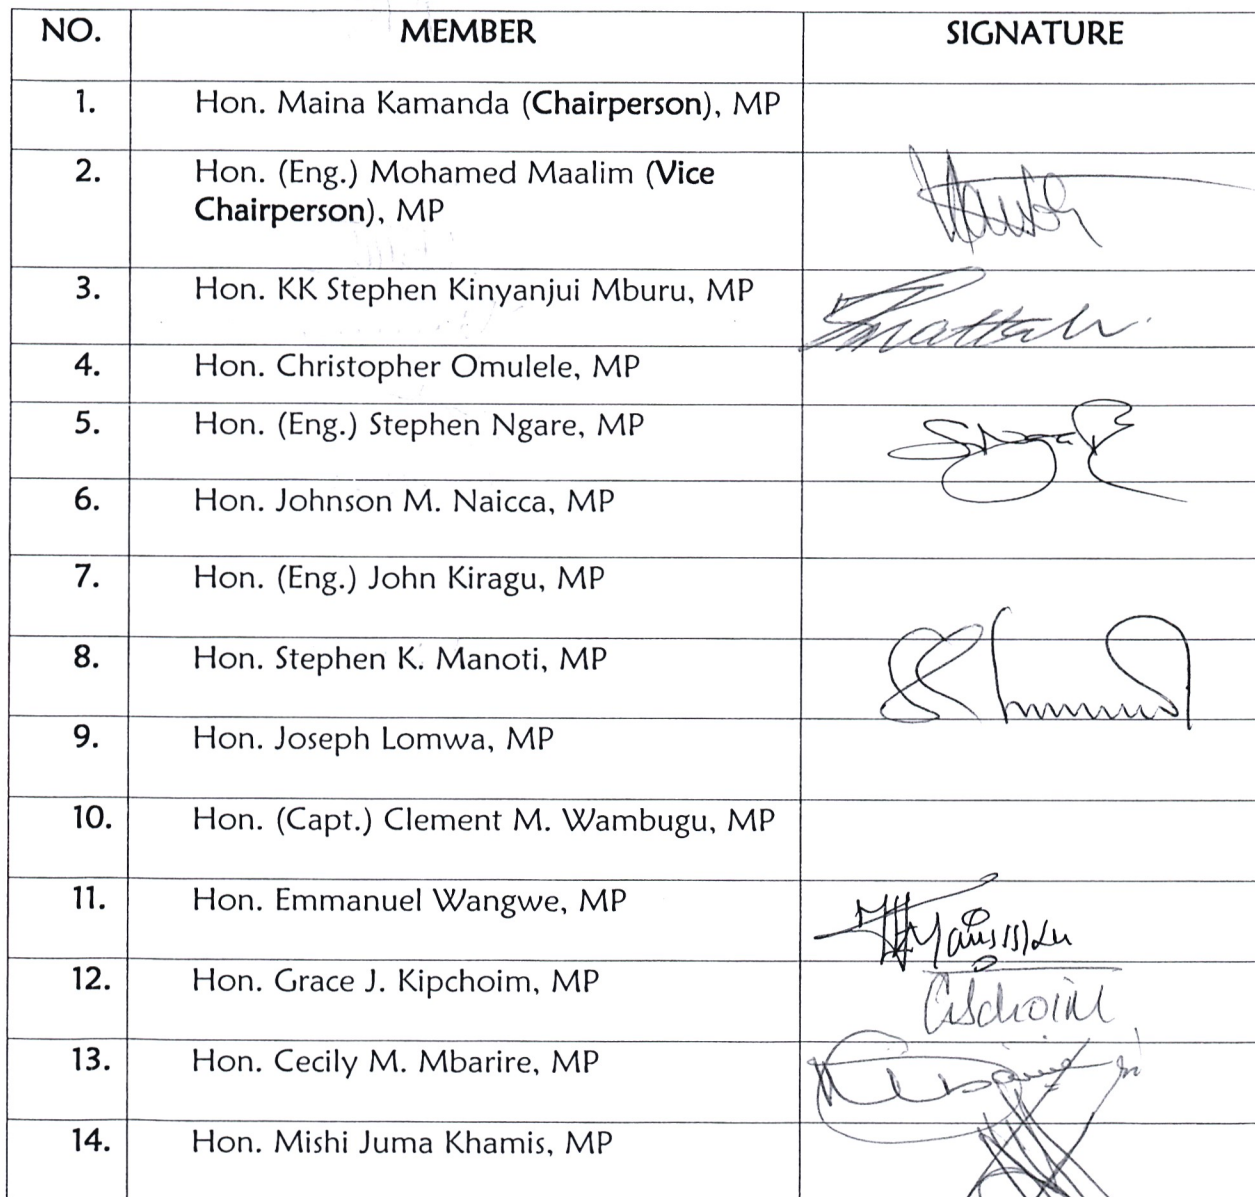 NO. MEMBER SIGNATURE
1. Hon. Maina Kamanda (Chairperson), MP
2. Hon. (Eng.) Mohamed Maalim (Vice
Chairperson), MP
3. Hon. KK Stephen Kinyanjui Mburu, MP
4. Hon. Christopher Omulele, MP
5. Hon. (Eng.) Stephen Ngare, MP
6. Hon. Johnson M. Naicca, MP
7. Hon. (Eng.) John Kiragu, MP
8. Hon. Stephen K. Manoti, MP
9. Hon. Joseph Lomwa, MP
10. Hon. (Capt.) Clement M. Wambugu, MP
11. Hon. Emmanuel Wangwe, MP
12. Hon. Grace J. Kipchoim, MP
13. Hon. Cecily M. Mbarire, MP
14. Hon. Mishi Juma Khamis, MP